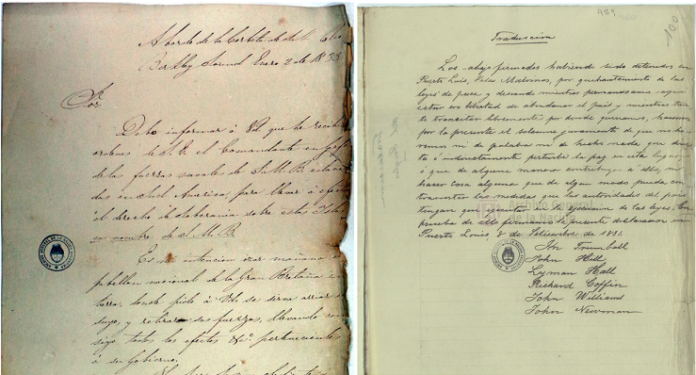 A bordo de la Corbeta de S.M. Clio
Berkley Sound Enero 2 de 1833
Sor
Debo informar á Vd que he recibido
ordenes de S.E. el Comandante en Gefe
de las fuerzas navales de S.M.B. estaciona
das en Sud America, para llevar á efecto
el derecho de soberania sobre estas Islas
en nombre de S.M.B.
Es mi intencion izar mañana el
pabellon nacional de la Gran Bretaña en
tierra, donde pido á Vd se sirva arriar el
suyo, y retirar sus fuerzas, llevando con
sigo todos los efectos &a. pertenecientes
á su Gobierno.
Traduccion
100
Los abajo firmados habiendo sido detenidos en
Puerto Luis, Islas Malvinas, por quebrantamiento de las
leyes de pesca, y deseando mientras permanezcamos aqui
estar en libertad de abandonar el país y mientras tanto
transitar libremente por donde queramos, hacemos
por la presente el solemne juramento de que no ha
remos ni de palabra ni de hecho nada que direc
ta ó indirectamente perturbe la paz en este lugar,
ó que de alguna manera contribuya a ello, ni
hacer cosa alguna que de algun modo pueda con
trarrestar las medidas que las autoridades del país
tengan que de las leyes. En
prueba de ello firmamos la presente declaracion en
Puerto Louis, 8 de de 1831
Jn Trumball
John Hall
Lyman Hall
Richard Coffin
John Williams
John Newman